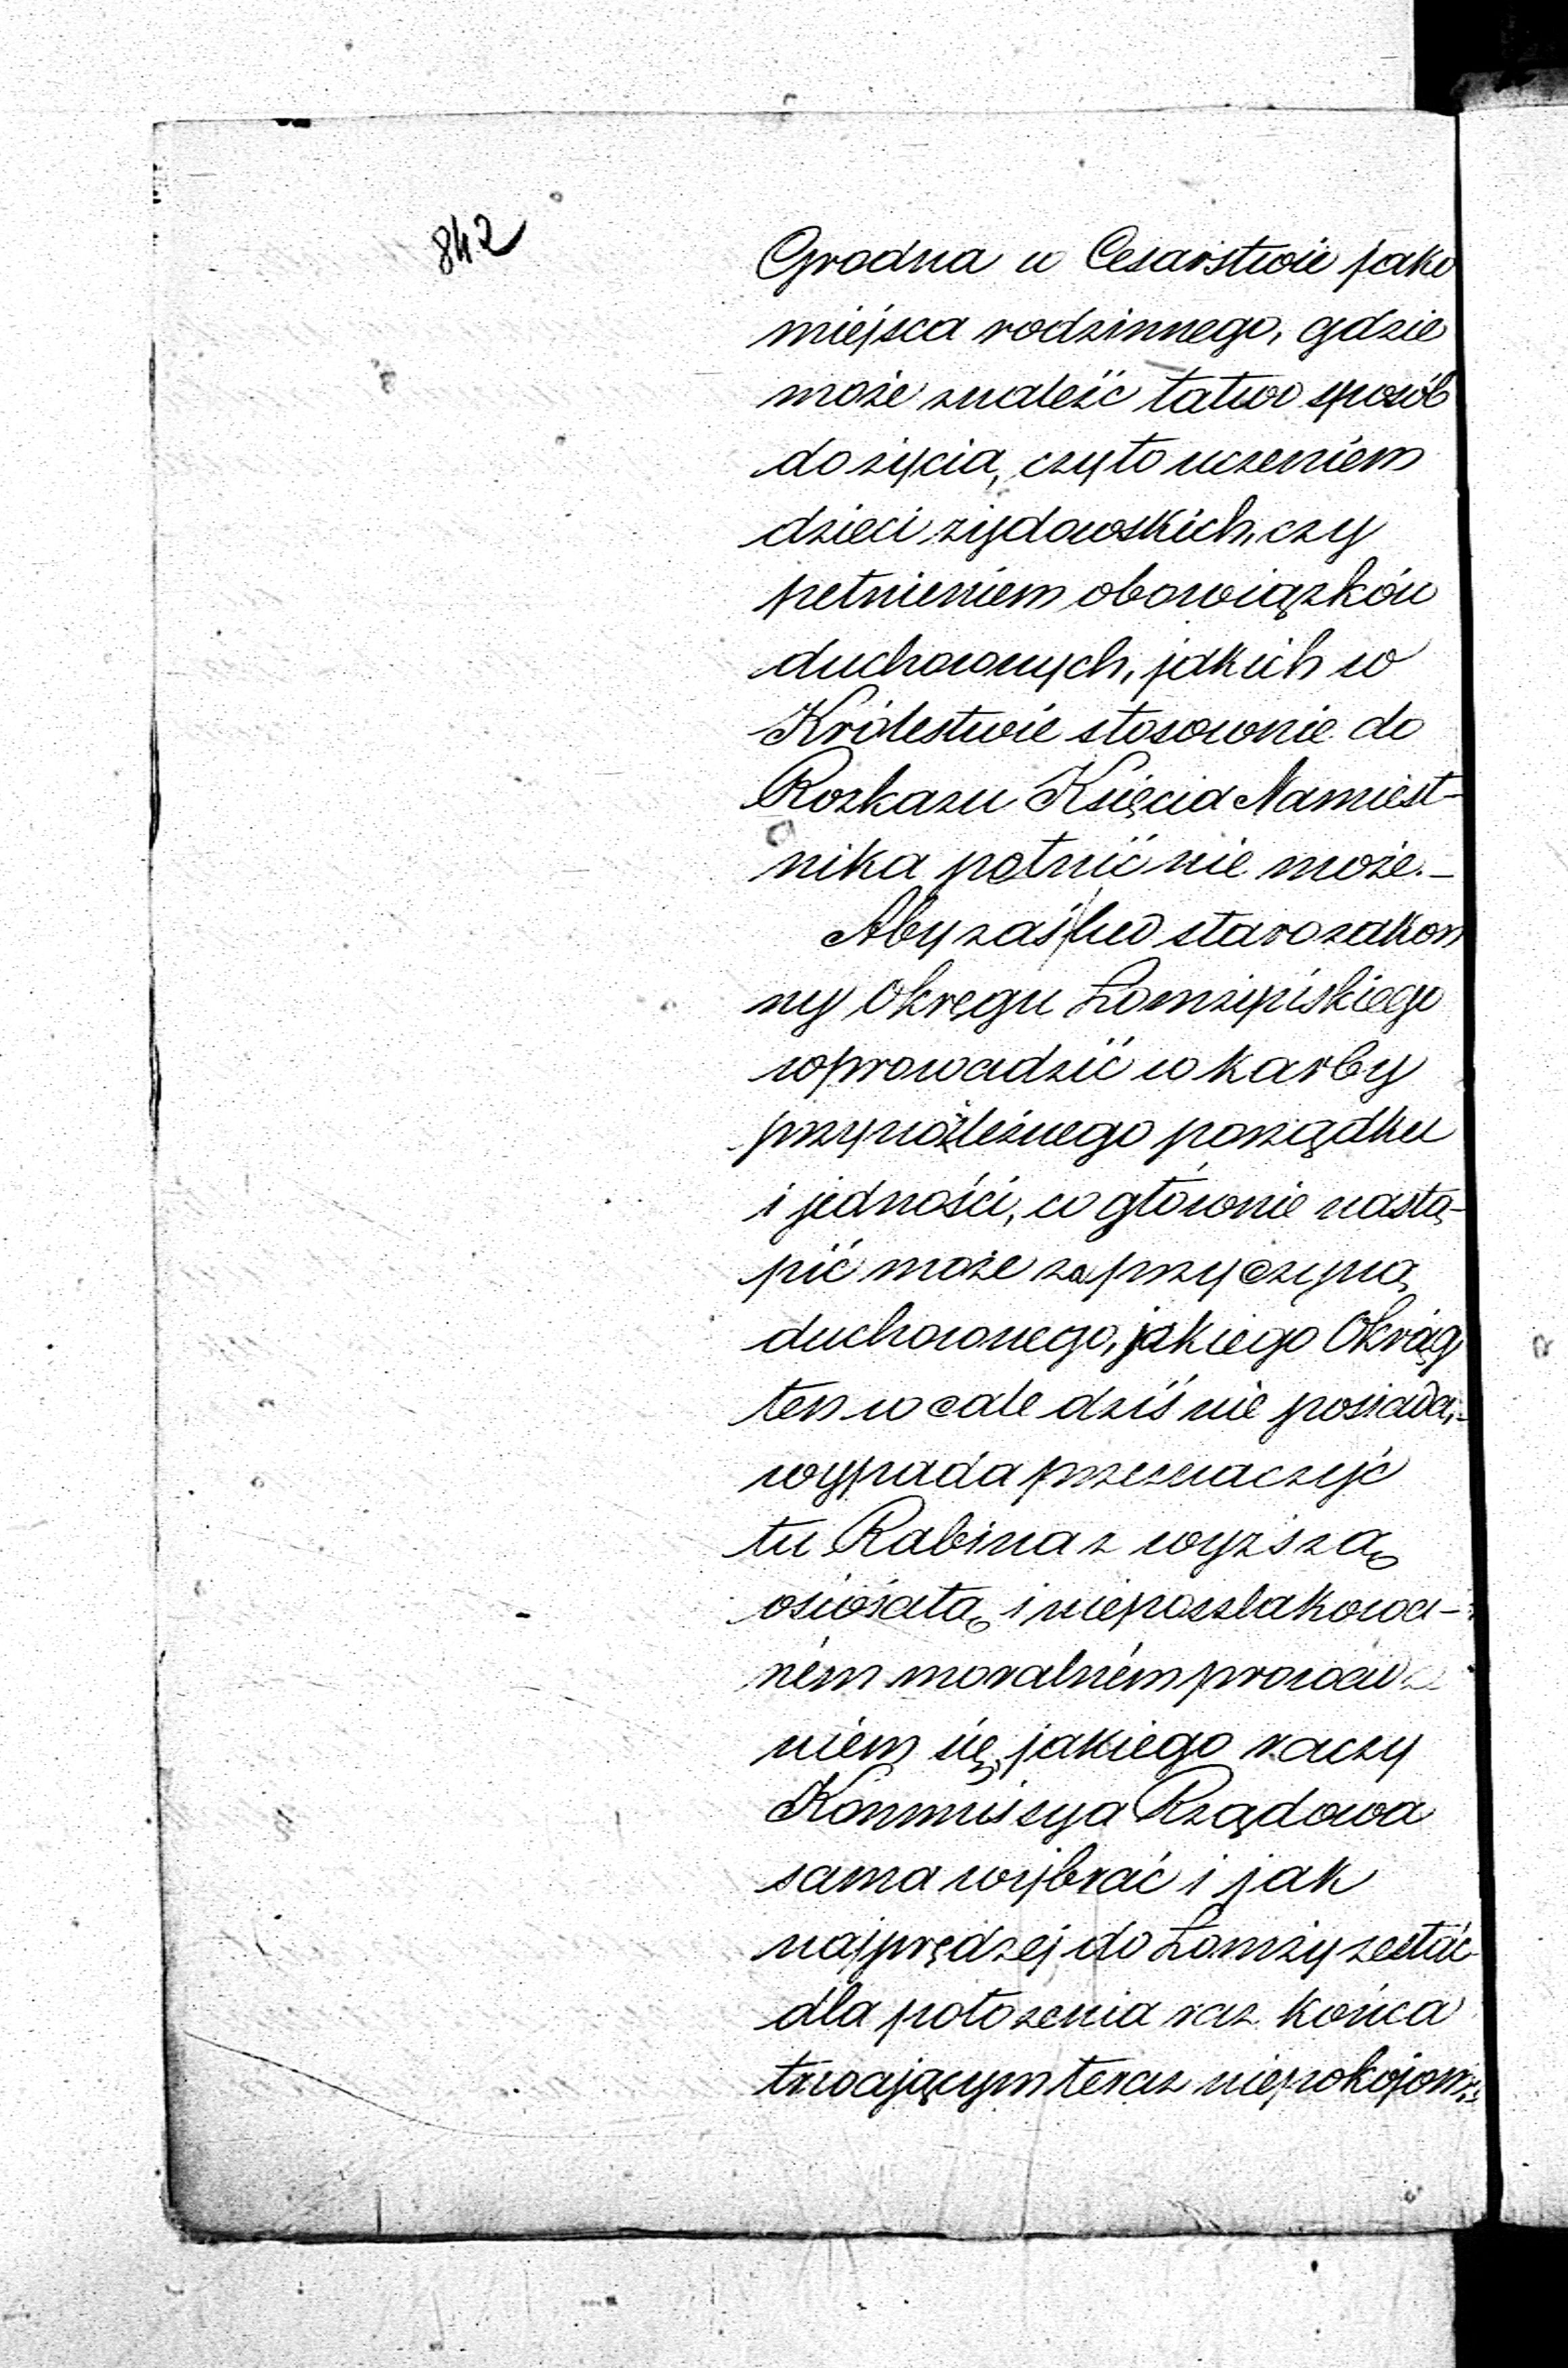 842
Grodna w Cesarstwie jako
miejsca rodzinnego, gdzie
może znaleźć łatwo sposób
do życia, czy to uczeniem
dzieci żydowskich, czy
pełnieniem obowiązków
duchownych, jakich w
Królestwie stosownie do
Rozkazu Księcia Namiest-
nika pełnić nie może.-
Aby zaś lud starozakon
ny Okręgu Łomżyńskiego
wprowadzić w karby
przynależnego porządku
i jedności, co głównie nastą-
pić może za przyczyną
duchownego, jakiego Okrąg
ten wcale dziś nie posiada,-
wypada przeznaczyć
tu Rabina z wyższą
oświatą i nieposzlakowa-
ném moralném prowadze
niem się, jakiego raczy
Kommissya Rządowa
sama wybrać i jak
najprędzej do Łomży zesłać
dla położenia raz końca
trwającym teraz niepokojom